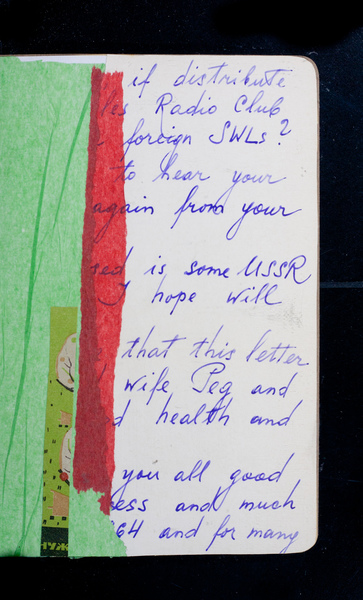 if distribute
les Radio Club
foreign SWLs?
to hear your
again from your
sed is some USSR
I hope will
that this letter
wife Peg and
d health and
you all good
ess and much
64 and for many